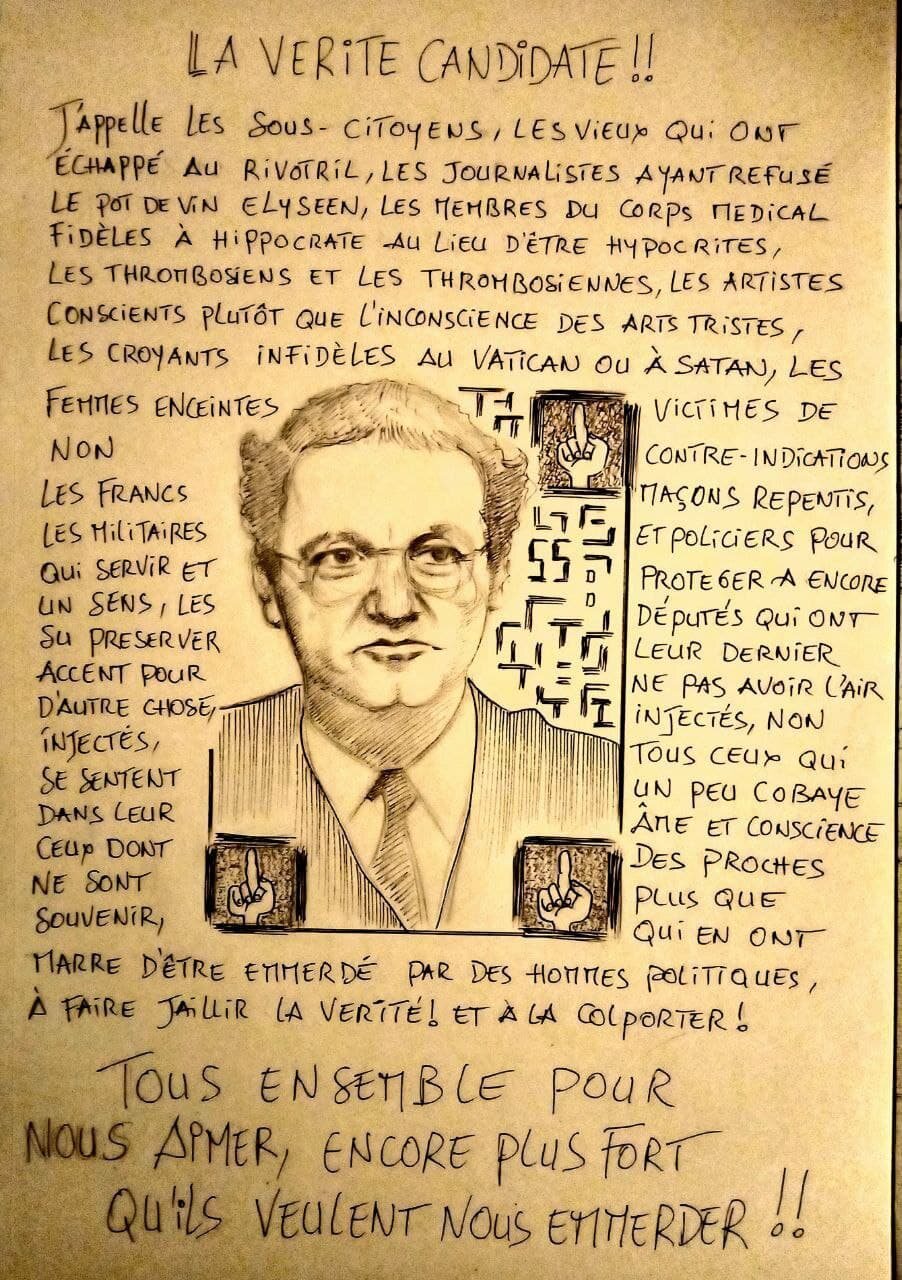 LA VERITE CANDIDATE !!
J'APPELLE LES SOUS-CITOYENS, LES VIEUX QUI ONT
ÉCHAPPÉ AU RIVOTRIL, LES JOURNALISTES AYANT REFUSÉ
LE POT DE VIN ELYSEEN, LES MEMBRES DU CORPS MEDICAL
FIDÈLES À HIPPOCRATE AU LIEU D'ÊTRE HYPOCRITES,
LES THROMBOSIENS ET LES THROMBOSIENNES, LES ARTISTES
CONSCIENTS PLUTÔT QUE L'INCONSCIENCE DES ARTS TRISTES,
LES CROYANTS INFIDÈLES AU VATICAN OU À SATAN, LES
FEMMES ENCEINTES VICTIMES DE
NON CONTRE-INDICATIONS
LES FRANCS MAÇONS REPENTIS,
LES MILITAIRES ET POLICIERS POUR
QUI SERVIR ET PROTEGER A ENCORE
UN SENS, LES DÉPUTÉS QUI ONT
SU PRESERVER LEUR DERNIER
ACCENT POUR NE PAS AVOIR L'AIR
D'AUTRE CHOSE, INJECTÉS, NON
INJECTÉS, TOUS CEUX QUI
SE SENTENT UN PEU COBAYE
DANS LEUR ÂME ET CONSCIENCE
CEUX DONT DES PROCHES
NE SONT PLUS QUE
SOUVENIR, QUI EN ONT
MARRE D'ÊTRE EMMERDÉ PAR DES HOMMES POLITIQUES,
À FAIRE JAILLIR LA VERITÉ! ET À LA COLPORTER !
TOUS ENSEMBLE POUR
NOUS AIMER, ENCORE PLUS FORT
QU'ILS VEULENT NOUS EMMERDER !!